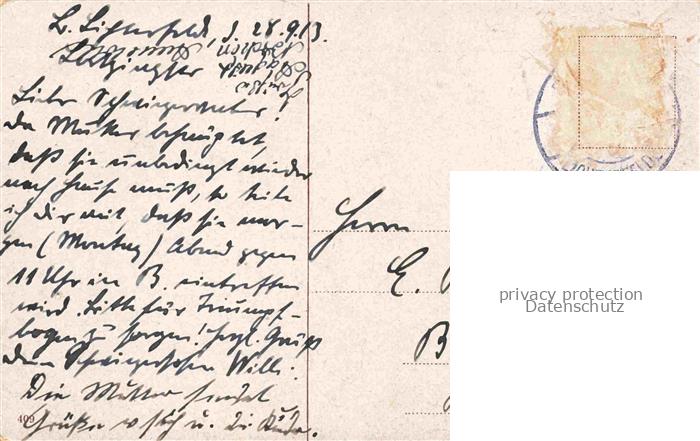 Gr. Lichterfelde, d. 28.9.13.
Lieber Schwiegervater!
Da Mutter behauptet,
daß sie unbedingt wieder
nach Hause muß, so teile
ich dir mit, daß sie mor-
gen (Montag) Abend gegen
11 Uhr in B. eintreffen
wird. Bitte für Triumpf-
bogen zu sorgen! Hrzl. Gruß
Dein Schwiegersohn Willi.
Die Mutter sendet
Grüße
u. die
409
Herrn
E.
B
privacy protection
Datenschutz